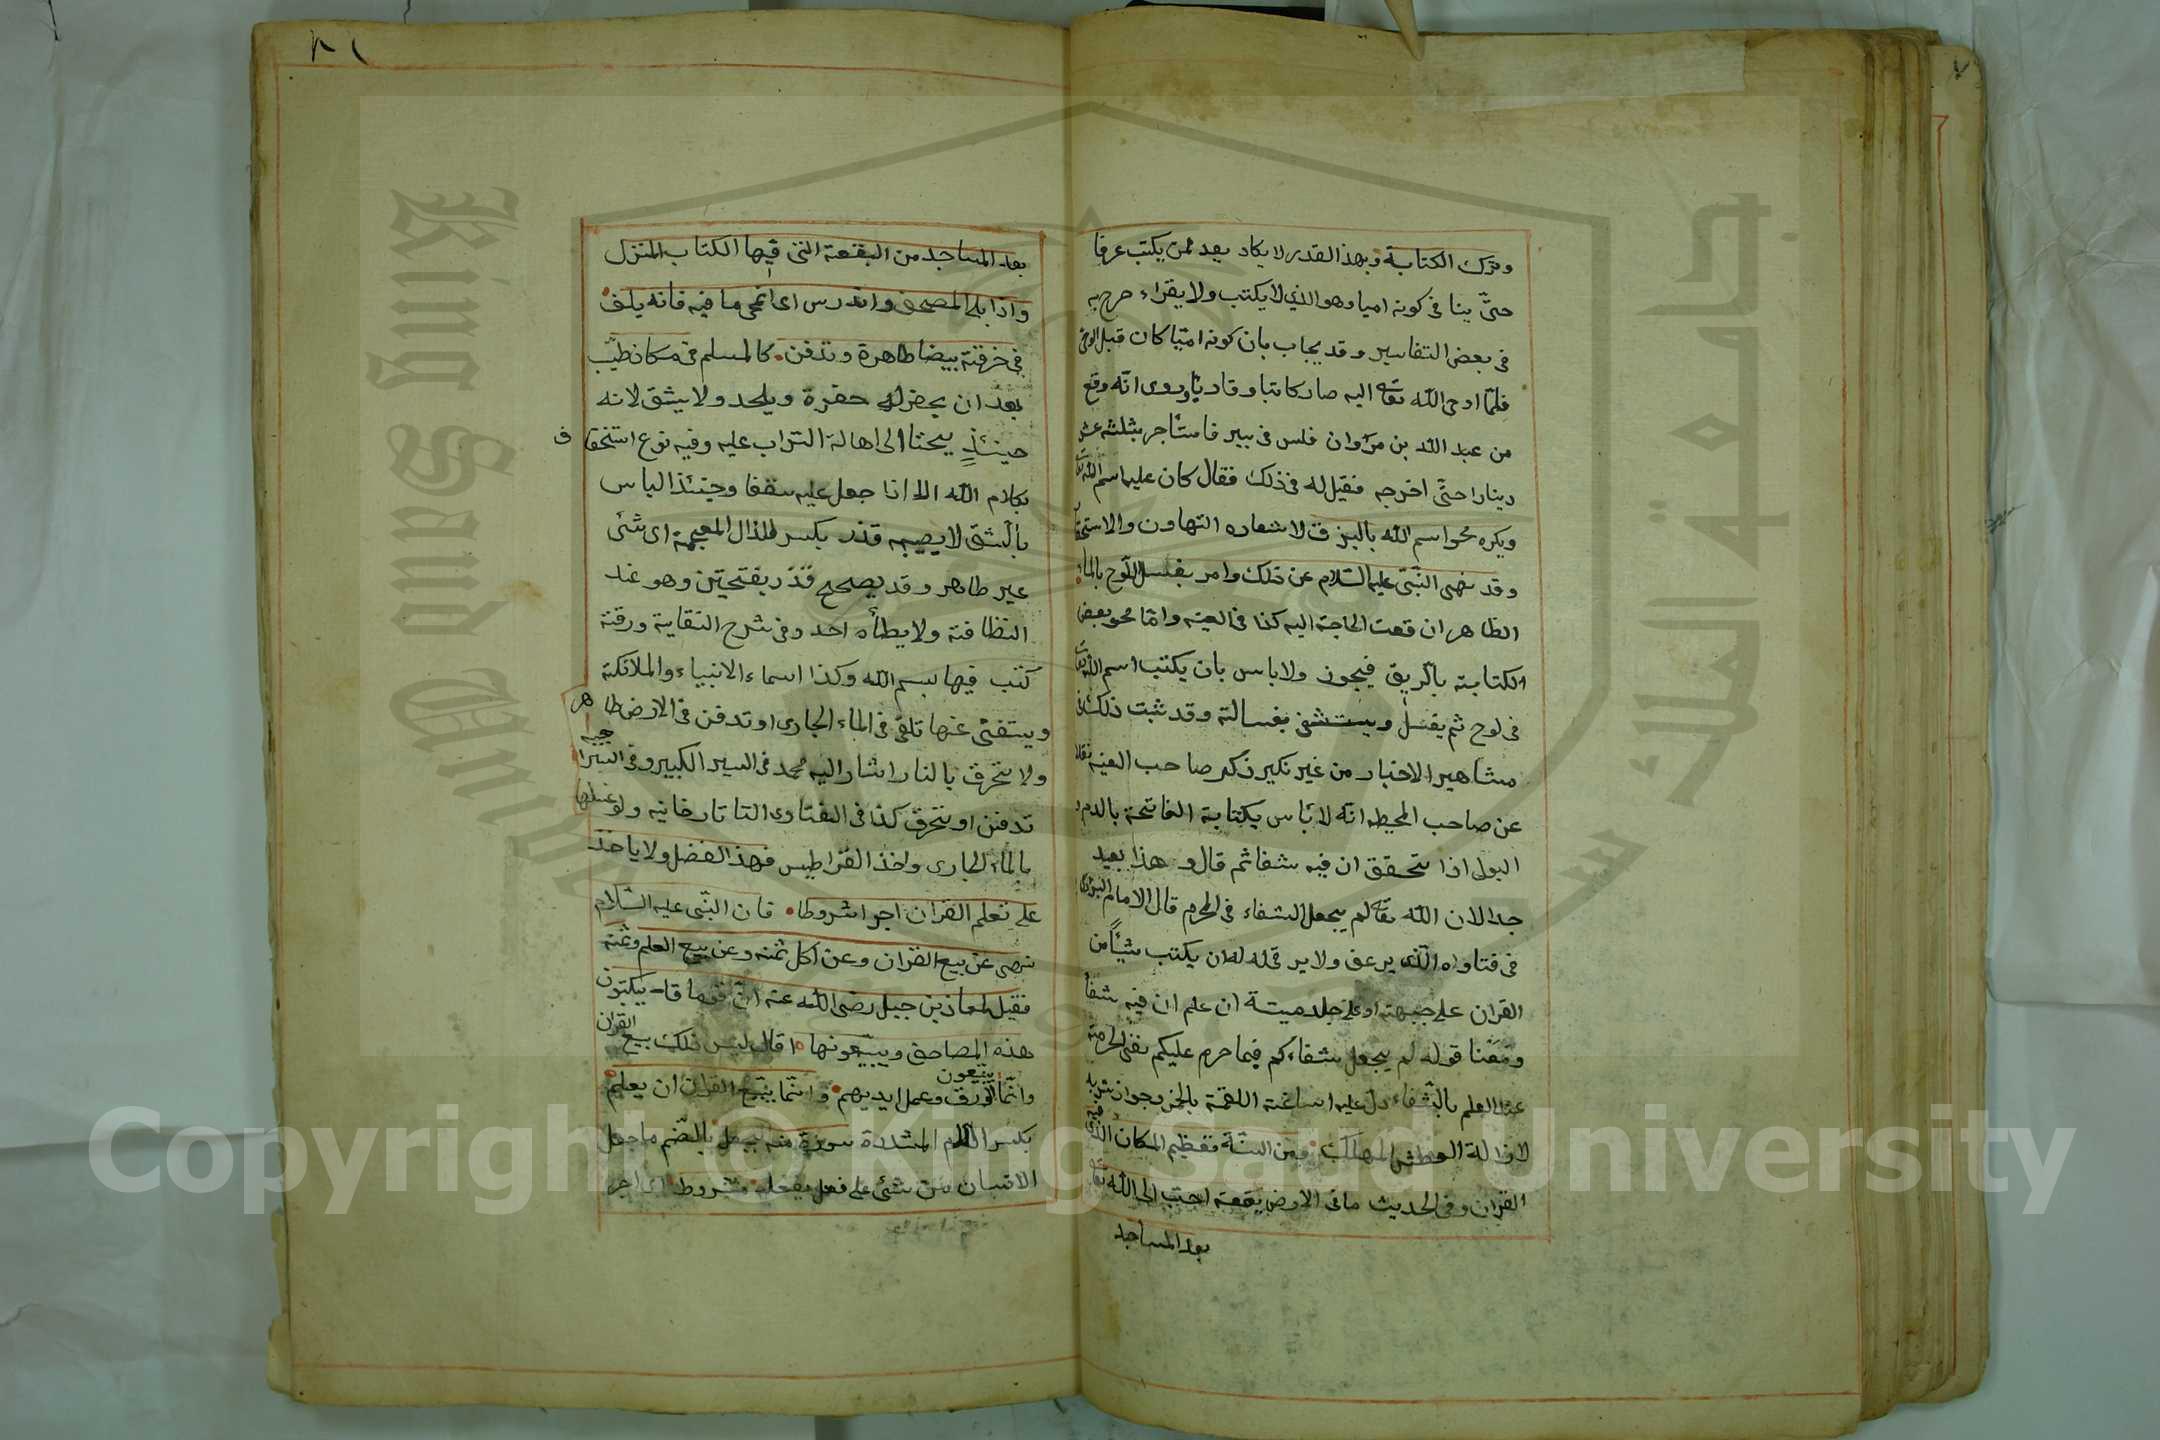 وترك الكتابة وبهذا القدر لا يكاد يعد ممن يكتب عرفا
حتى ينافي كونه اميا وهو الذي لا يكتب ولا يقراء صرح به
في بعض التفاسير وقد يجاب بان كونه اميا كان قبل الوحي
فلما اوحى الله تعالى اليه صار كاتبا وقاديا وروى انه وقع
من عبد الله بن مروان فلس في بير فاستاجر بثلثة عشر
دينارا حتى اخرجه فقيل له في ذلك فقال كان عليه اسم الله تعالى
ويكره محو اسم الله بالبزق لاشعاره التهاون والاستحقا
وقد نهى النبي عليه السلام عن ذلك وامر بغسل اللوح بالماء
الظاهر ان قعت الحاجة اليه كذا في الغنيه واما محو بعض
الكتابة بالريق فيجوز ولا باس بان يكتب اسم الله تعالى
في لوح ثم يغسل ويستشفى بغسالته وقد ثبت ذلك في
مشاهير الاخبار من غير نكير ذكر صاحب الغنيه نقلا
عن صاحب المحيط انه لا باس بكتابة الفاتحة بالدم و
البول اذا تحقق ان فيه شفا ثم قال و هذا بعيد
جدا لان الله تعالى لم يجعل الشفاء في المحرم قال الامام البزازى
في فتاواه الذى يرعف ولا يرقى له له ان يكتب شيأ من
القران على جبهته او على جلد ميتة ان علم ان فيه شفا
ومعنا قوله لم يجعل شفاءكم فيما حرم عليكم نفى الحرمة
عند العلم بالشفاء دل عليه اساغته اللقمة بالخمر وجواز شربه
لازالة العطش المهلك فمن السنة تعظيم المكان الذى فيه
القران وفي الحديث ما في الارض بقعة احب الى الله تعالى
بعد المساجد
٨١
بعد المساجد من البقعة التى فيها الكتاب المنزل
واذا بلى المصحف واندرس اى انمحى ما فيه فانه يلف
في خرقة بيضا طاهرة وتدفن كالمسلم في مكان طيب
بعد ان يحفر له حفرة ويلحد ولا يشق لانه
حينئذ يحتاا الى اهالة التراب عليه وفيه نوع استخفا ف
بكلام الله الا اذا جعل عليه سقفا وحينئذ الباس
بالشق لا يصيبه قذر بكسر الذال المعجمة اى شئ
غير طاهر وقد يصحح قذر بفتحتين وهو ضد
النظافة ولا يطأه احد وفي شرح النقاية ورقة
كتب فيها بسم الله وكذا اسماء الانبياء والملائكة
ويستغنى عنها تلقى في الماء الجارى او تدفن في الارض طاهر
ولا تحرق بالنار اشار اليه محمد في السير الكبير وفي السراجيه
تدفن او تحرق كذا في الفتاوى التاتارخانيه ولو غسلها
بالماء الجارى واخذ القراطيس فهذا الفضل ولا ياخذ
على تعلم القران اجرا شروطا فان النبى عليه السلام
نهى عن بيع القران وعن اكل ثمنه وعن بيع العلم وثمنه
فقيل لمعاذ بن جبل رضى الله عنه ان قوما قا- يكتبون
هذه المصاحف ويبيعونها قال ليس ذلك بيع القران
وانما يبيعون الورق وعمل ايديهم وانما يبيع القران ان يعلم
بكسر اللام المشددة سورة منه بجعل بالضم ما جعل
الانسان من شئ على فعل يفعله مشروط اى اجر
King Saud University
Copyright © King Saud University